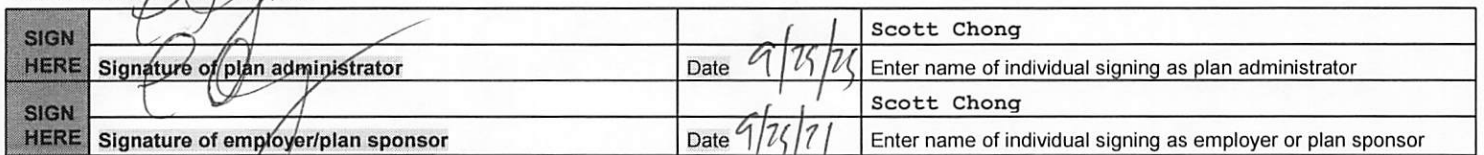 SIGN HERE
Scott Chong
Signature of plan administrator Date 9/25/25 Enter name of individual signing as plan administrator
SIGN HERE
Scott Chong
Signature of employer/plan sponsor Date Enter name of individual signing as employer or plan sponsor